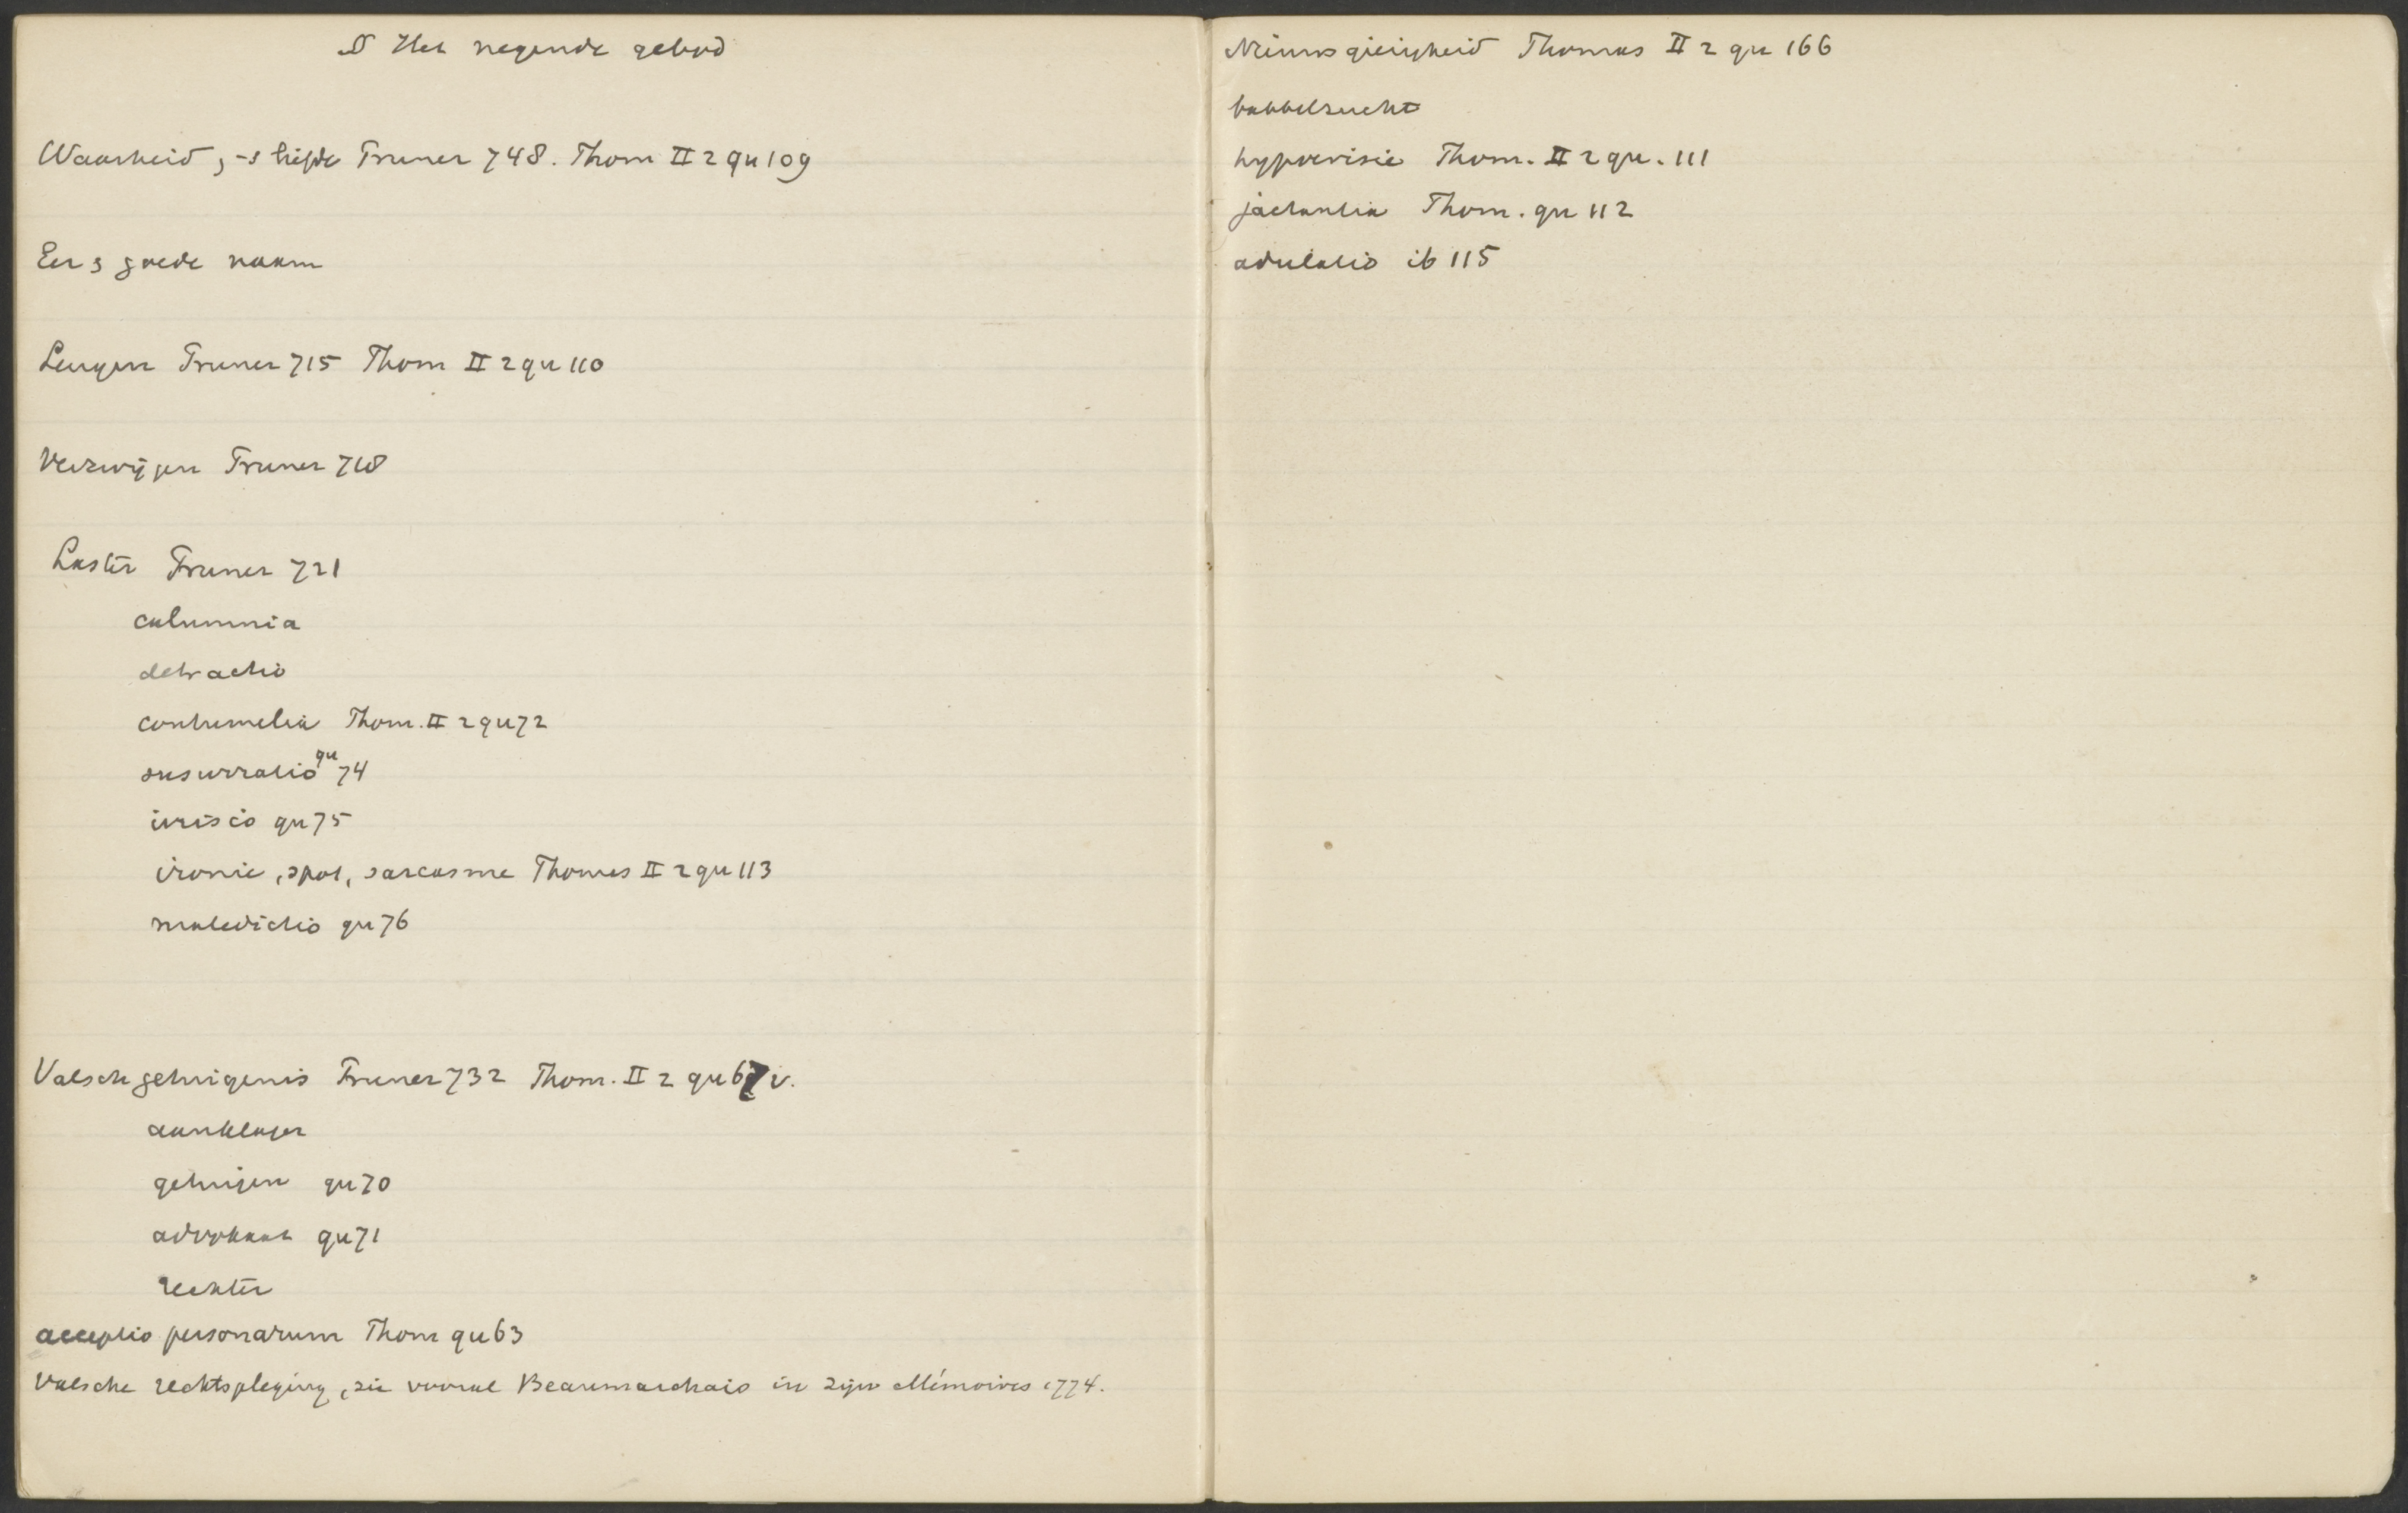 § Het negende gebod
Waarheid, -s liefde Pruner 748. Thom II 2 qu 109
Eer, goede naam
Leugen Pruner 715 Thom II 2 qu 110
Verzwijgen Pruner 718
Laster Pruner 721
calumnia
detractio
contumelia Thom. II 2 qu 72
susurratio qu 74
irrisio qu 75
ironie, spot, sarcasme Thomas II 2 qu 113
maledictio qu 76
Valsch getuigenis Pruner 732 Thom. II 2 qu 67 v.
aanklager
getuigen qu 70
advokaat qu 71
rechter
acceptio personarum Thom qu 63
Valsche rechtspleging, zie vooral Beaumarchais in zijn Mémoires 1774.
Nieuwsgierigheid Thomas II 2 qu 166
babbelzucht
hypocrisie Thom. II 2 qu. 111
jactantia Thom. qu 112
adulatio ib 115